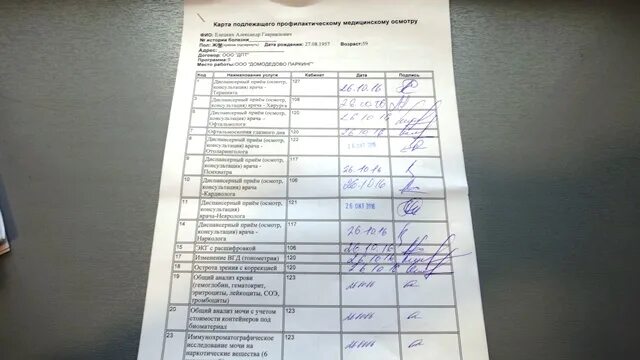 Карта подлежащего профилактическому медицинскому осмотру
ФИО: Александр Гаврилович
№ истории болезни
Пол: Ж/М (нужное подчеркнуть) Дата рождения: 27.08.1957 Возраст: 59
Адрес:
Договор: ООО "ДПТ"
Программа:
Место работы: ООО "ДОМОДЕДОВО ПАРКИНГ"
Код Наименование услуги Кабинет Дата Подпись
1 Диспансерный приём (осмотр, консультация) врача - Терапевта 127 26.10.16
3 Диспансерный приём (осмотр, консультация) врача - Хирурга 108 26.10.16
6 Диспансерный приём (осмотр, консультация) врача - Офтальмолога 120 26.10.16
7 Офтальмоскопия глазного дна 120 26.10.16
8 Диспансерный приём (осмотр, консультация) врача - Отоларинголога 122 26 ОКТ 2016
9 Диспансерный приём (осмотр, консультация) врача - Психиатра 117 26.10.16
10 Диспансерный приём (осмотр, консультация) врача - Кардиолога 106 26.10.16
11 Диспансерный приём (осмотр, консультация) врача-Невролога 121 26 ОКТ 2016
14 Диспансерный приём (осмотр, консультация) врача - Нарколога 117 26.10.16
15 ЭКГ с расшифровкой 106 26.10.16
17 Изменение ВГД (тонометрия) 120 26.10.16
18 Острота зрения с коррекцией 120 26.10.16
19 Общий анализ крови (гемоглобин, гематокрит, эритроциты, лейкоциты, СОЭ, тромбоциты) 123 261016
20 Общий анализ мочи с учетом стоимости контейнеров под биоматериал 123 261016
23 Иммунохроматографическое исследование мочи на наркотические вещества (6 123 261016